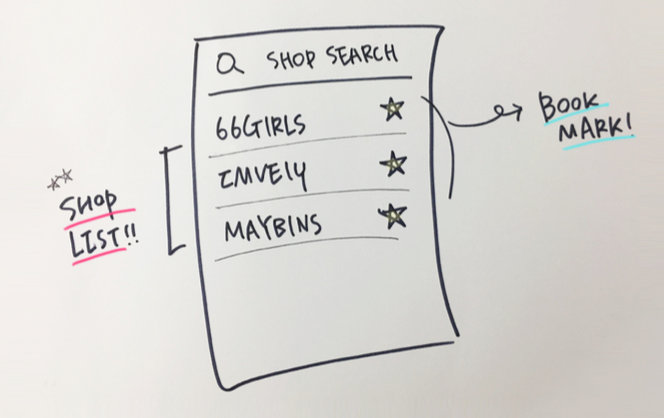 SHOP SEARCH
66GIRLS
IMVELY
MAYBINS
SHOP
LIST!!
BOOK
MARK!